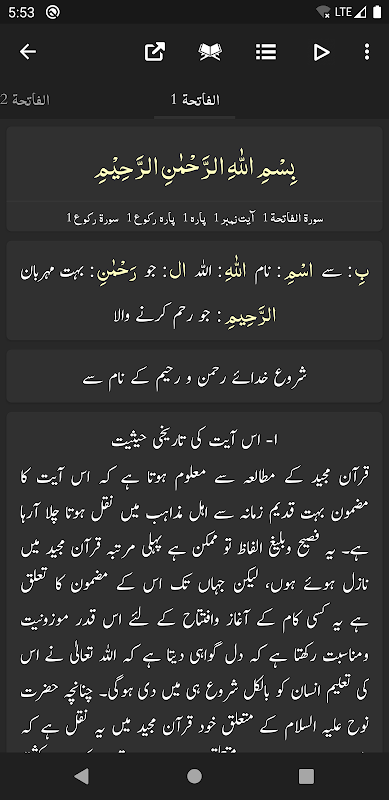 5:53
LTE
الفاتحة 1
الفاتحة 2
بِسْمِ اللّٰهِ الرَّحْمٰنِ الرَّحِيْمِ
سورۃ الفاتحة 1 آیت نمبر 1 پارہ 1 پارہ رکوع 1 سورۃ رکوع 1
بِ : سے اسْمِ : نام اللّٰهِ : اللہ ال : جو رَحْمٰنِ : بہت مہربان
الرَّحِيمِ : جو رحم کرنے والا
شروع خدائے رحمن و رحیم کے نام سے
۱- اس آیت کی تاریخی حیثیت
قرآن مجید کے مطالعہ سے معلوم ہوتا ہے کہ اس آیت کا
مضمون بہت قدیم زمانہ سے اہل مذاہب میں نقل ہوتا چلا آرہا
ہے۔ یہ فصیح وبلیغ الفاظ تو ممکن ہے پہلی مرتبہ قرآن مجید میں
نازل ہوئے ہوں، لیکن جہاں تک اس کے مضمون کا تعلق
ہے یہ کسی کام کے آغاز وافتتاح کے لئے اس قدر موزونیت
ومناسبت رکھتا ہے کہ دل گواہی دیتا ہے کہ اللہ تعالیٰ نے اس
کی تعلیم انسان کو بالکل شروع ہی میں دی ہوگی۔ چنانچہ حضرت
نوح علیہ السلام کے متعلق خود قرآن مجید میں یہ نقل ہے کہ